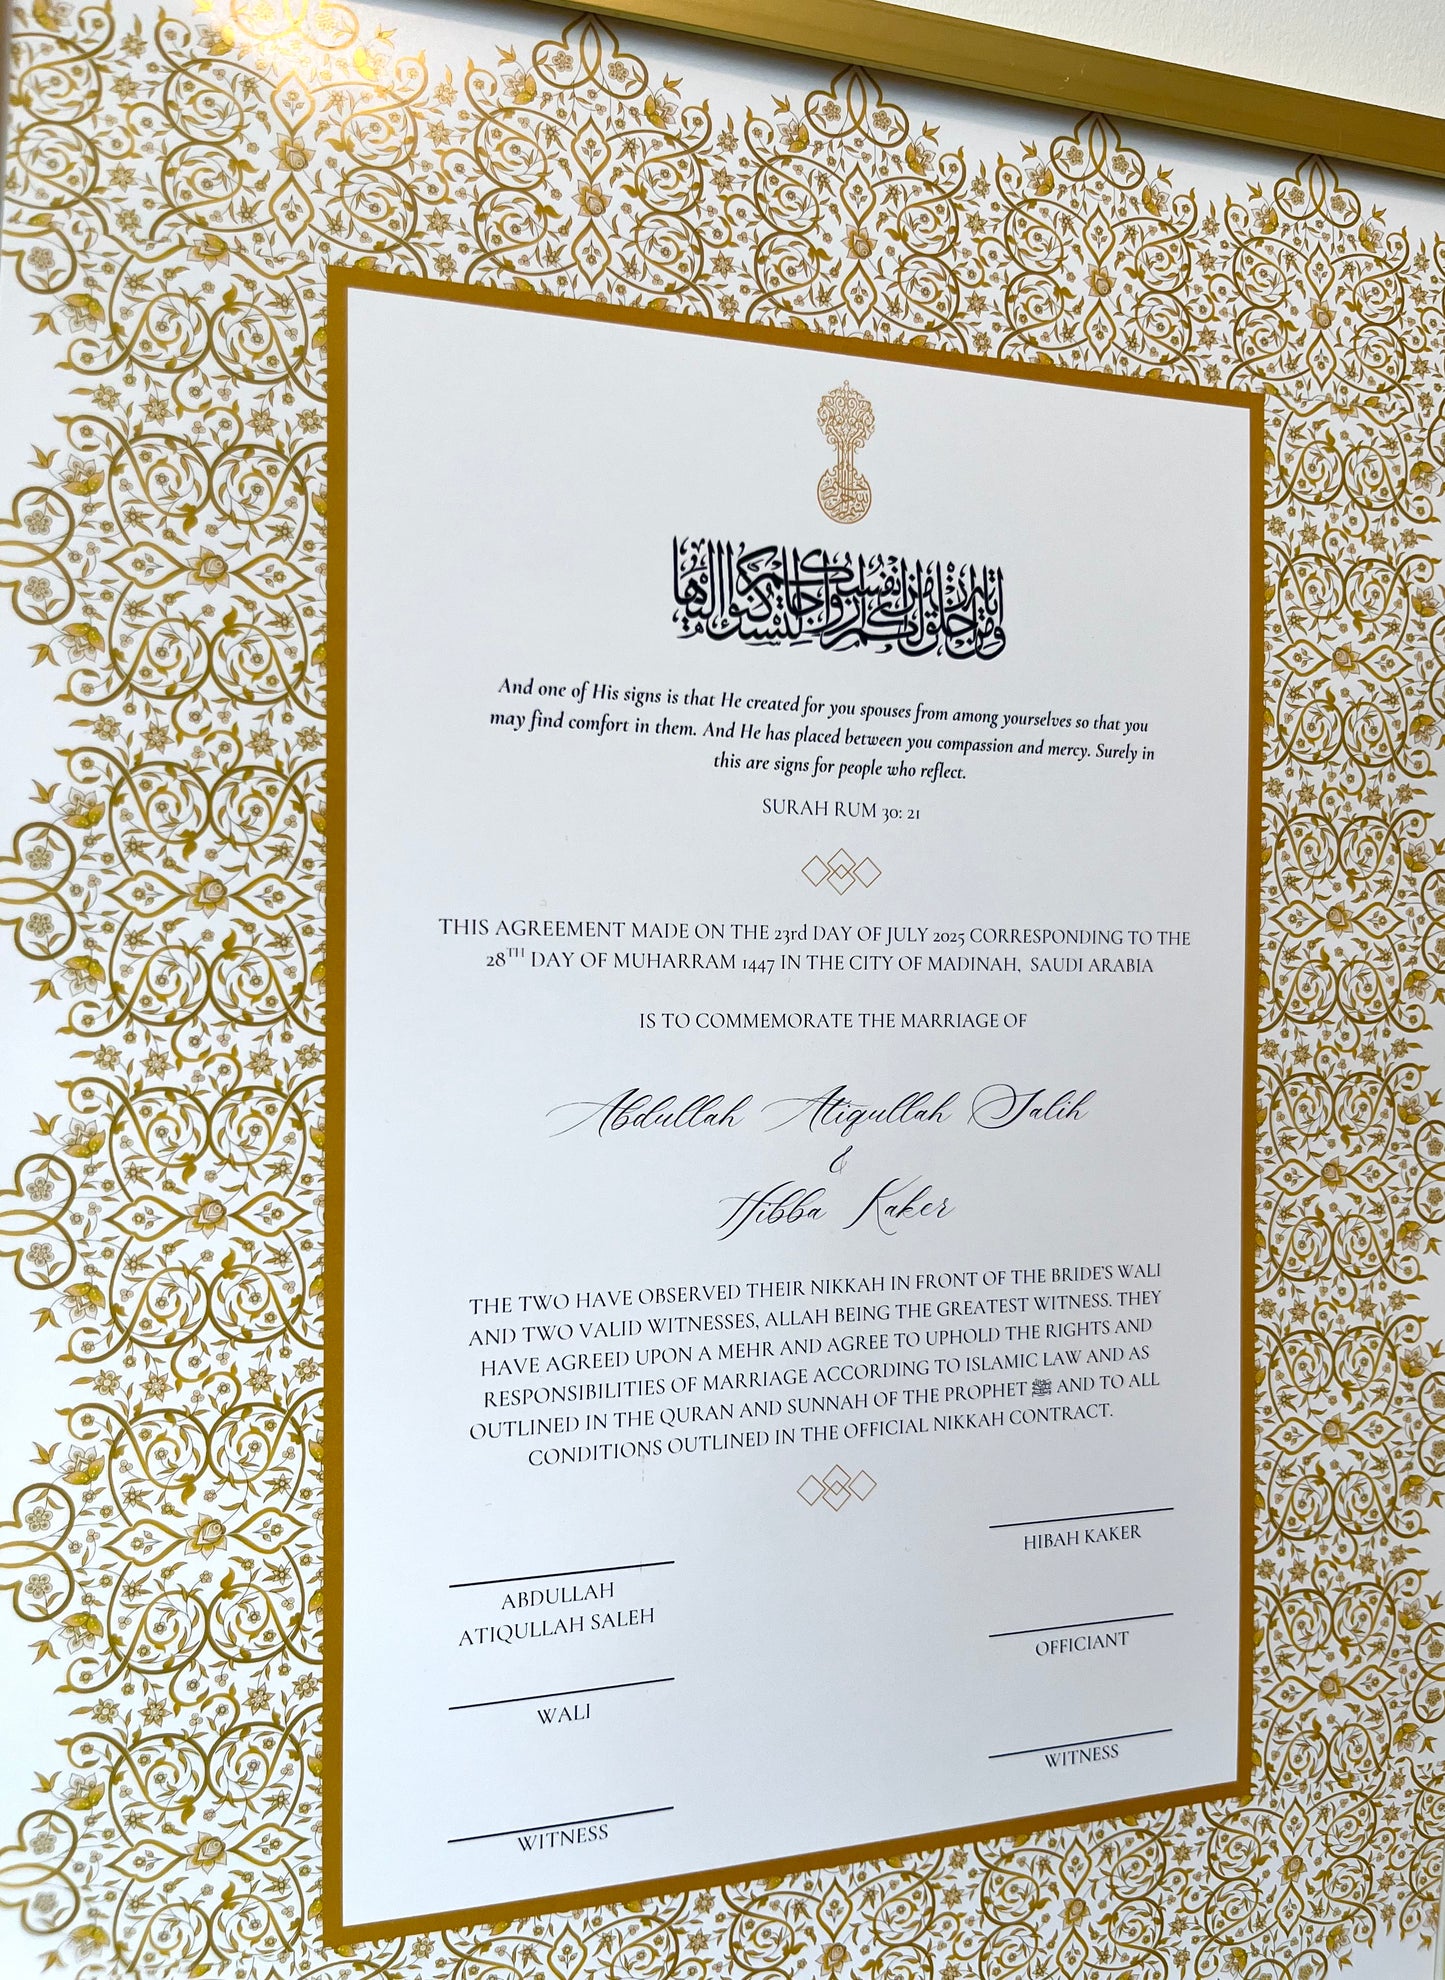 ومن آياته أن خلق لكم من أنفسكم أزواجا لتسكنوا إليها
And one of His signs is that He created for you spouses from among yourselves so that you
may find comfort in them. And He has placed between you compassion and mercy. Surely in
this are signs for people who reflect.
SURAH RUM 30: 21
THIS AGREEMENT MADE ON THE 23rd DAY OF JULY 2025 CORRESPONDING TO THE
28TH DAY OF MUHARRAM 1447 IN THE CITY OF MADINAH, SAUDI ARABIA
IS TO COMMEMORATE THE MARRIAGE OF
Abdullah Atiqullah Salih
&
Hibba Kaker
THE TWO HAVE OBSERVED THEIR NIKKAH IN FRONT OF THE BRIDE'S WALI
AND TWO VALID WITNESSES, ALLAH BEING THE GREATEST WITNESS. THEY
HAVE AGREED UPON A MEHR AND AGREE TO UPHOLD THE RIGHTS AND
RESPONSIBILITIES OF MARRIAGE ACCORDING TO ISLAMIC LAW AND AS
OUTLINED IN THE QURAN AND SUNNAH OF THE PROPHET ﷺ AND TO ALL
CONDITIONS OUTLINED IN THE OFFICIAL NIKKAH CONTRACT.
HIBAH KAKER
ABDULLAH
ATIQULLAH SALEH
OFFICIANT
WALI
WITNESS
WITNESS